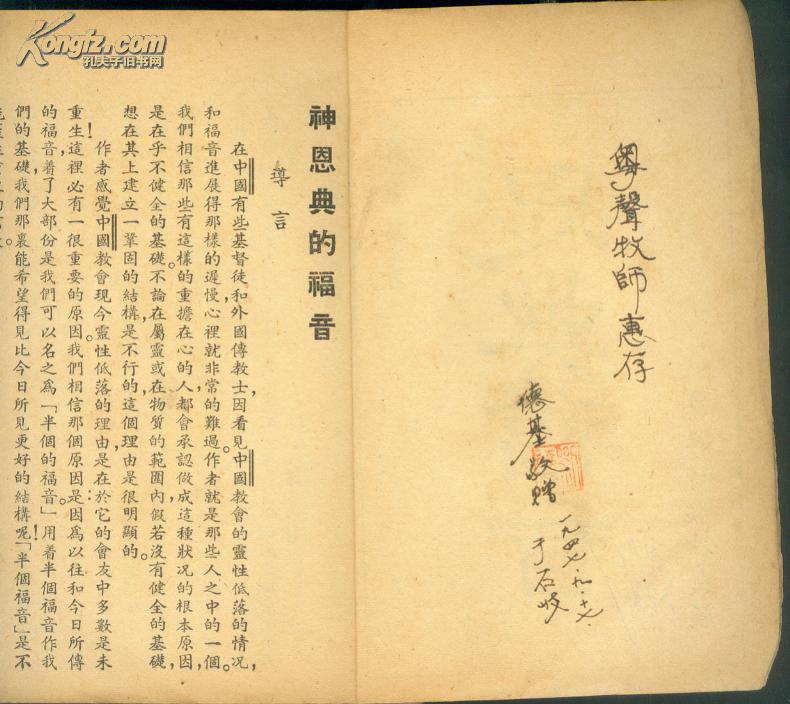 Kongfz.com
孔夫子旧书网
粵聲牧師惠存
德基敬贈
一九四七.九.十七.
于石岐
神恩典的福音
導言
在中國有些基督徒和外國傳教士，因看見中國教會的靈性低落的情況，
和福音進展得那樣的遲慢，心裡就非常的難過。作者就是那些人之中的一個。
我們相信那些有這樣的重擔在心的人，都會承認做成這種狀況的根本原因，
是在乎不健全的基礎。不論在屬靈或在物質的範圍內，假若沒有健全的基礎，
想在其上建立一鞏固的結構，是不行的，這個理由是很明顯的。
作者感覺中國教會現今靈性低落的理由，是在於它的會友中多數是未
重生！這裡必有一很重要的原因。我們相信那個原因是因爲以往和今日所傳
的福音，着了大部份是我們可以名之爲「半個的福音」。用着半個福音作我
們的基礎，我們那裏能希望得見比今日所見更好的結構呢！「半個福音」是不